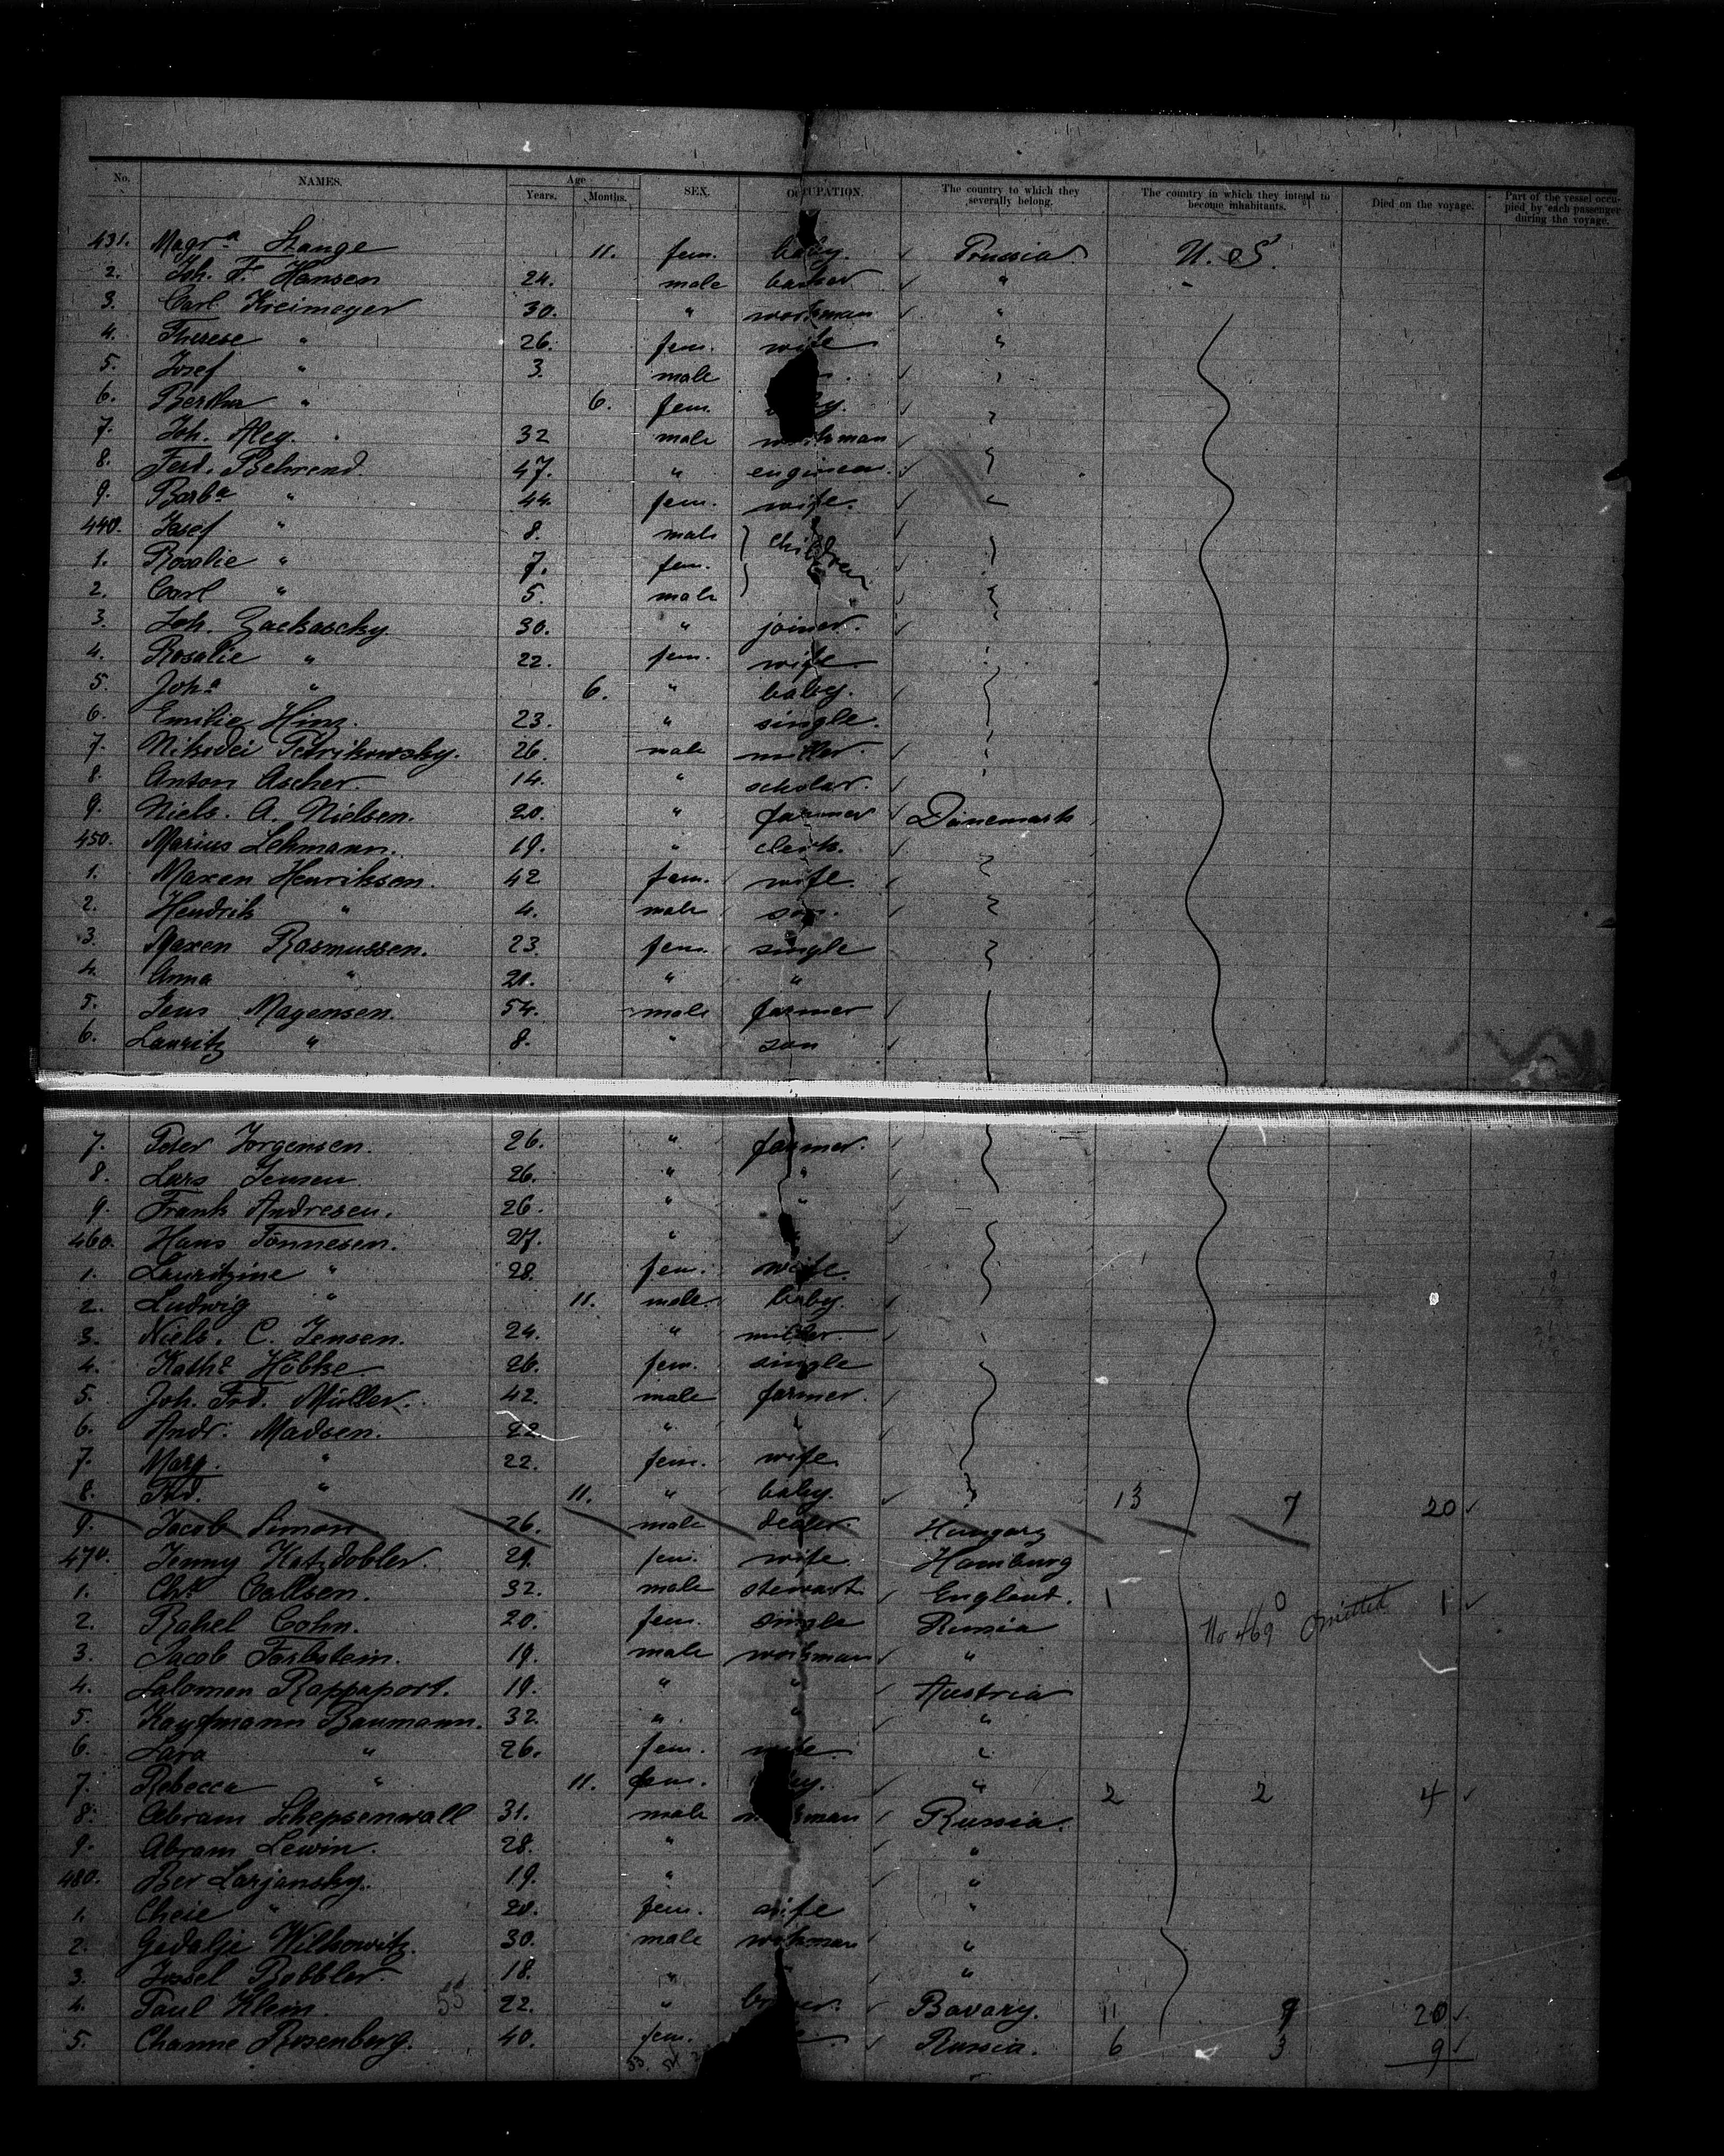 No. NAMES. Age Years. Months. SEX. OCCUPATION. The country to which they severally belong. The country in which they intend to become inhabitants. Died on the voyage. Part of the vessel occupied by each passenger during the voyage.
431. Magr.a Stange 11. fem. baby. Prussia. U. S.
2. Joh. F. Hansen 24. male "
3. Carl Kreimeyer 30. " workman "
4. Therese " 26. fem. wife "
5. Josef " 3. male
6. Bertha " 6. fem.
7. Joh. Aleg. 32 male workman
8. Ferd. Behrend. 47. " engineer.
9. Barb.a " 44. fem. wife.
440. Josef " 8. male children
1. Rosalie " 7. fem.
2. Carl " 5. male
3. Joh. Zackaschy 30. " joiner.
4. Rosalie " 22. fem. wife
5. Joh.a " 6. " baby.
6. Emilie Hinz. 23. " single.
7. Nikodei Petrikowsky. 26. male miller.
8. Anton Ascher. 14. " scholar.
9. Niels. A. Nielsen. 20. " farmer Dänemark
450. Marius Lehmann. 19. " clerk.
1. Maren Henriksen. 42 fem. wife.
2. Hendrik " 4. male son.
3. Maren Rasmussen. 23. fem. single
4. Anna " 21. " "
5. Jens Magensen. 54. male farmer
6. Lauritz " 8. " son
7. Peter Jorgensen. 26. " farmer.
8. Lars Jensen 26. " "
9. Frank Andresen. 26. " "
460. Hans Tönnesen. 27. "
1. Lauritzine " 28. fem. wife.
2. Ludwig " 11. male. baby.
3. Niels. C. Jensen. 24. " miller.
4. Kath.e Höbke 26. fem. single
5. Joh. Frd. Müller. 42. male farmer.
6. Andr. Madsen. 22. " "
7. Marg. " 22. fem. wife
8. Frd. " 11. " baby. 13 7 20
9. Jacob Simon 26. male dealer. Hungary
470. Jenny Katzdobler. 29. fem. wife. Hamburg
1. Chr. Callsen. 32. male stewart England. 1 0 1
2. Rahel Cohn. 20. fem. single Russia No 469 omitted
3. Jacob Farbstein. 19. male workman "
4. Salomon Rappaport. 19. " " Austria
5. Kaufmann Baumann. 32. " " "
6. Sara " 26. fem. wife "
7. Rebecca " 11. fem. " 2 2 4
8. Abram Schepsenwall 31. male workman Russia.
9. Abram Lewin. 28. " "
480. Ber Larjansky. 19. " "
1. Cheie " 20. fem. wife "
2. Gedalje Wilkowitz. 30. male workman "
3. Jossel Bobbler. 18. " "
4. Paul Klein. 55 22. " Bavary. 11 9 20
5. Channe Rosenberg. 40. fem. Russia. 6 3 9